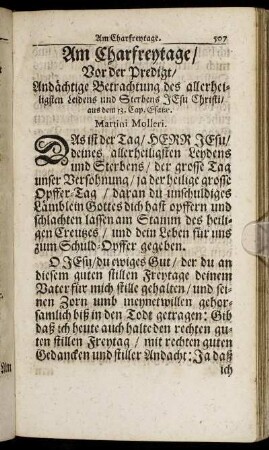 Am Charfreytage. 507
Am Charfreytage/
Vor der Predigt/
Andächtige Betrachtung des allerhei-
ligsten Leidens und Sterbens JEsu Christi/
aus dem 53. Cap. Esaiæ.
Martini Molleri.
DAs ist der Tag/ HERR JEsu/
deines allerheiligsten Leydens
und Sterbens/ der grosse Tag
unser Versöhnung/ ja der heilige grosse
Opffer-Tag/ daran du unschuldiges
Lämblein Gottes dich hast opffern und
schlachten lassen am Stamm des heili-
gen Creutzes/ und dein Leben für uns
zum Schuld-Opffer gegeben.
O JEsu/ du ewiges Gut/ der du an
diesem guten stillen Freytage deinem
Vater für mich stille gehalten/ und sei-
nen Zorn umb meynetwillen gehor-
samlich biß in den Todt getragen: Gib
daß ich heute auch halte den rechten gu-
ten stillen Freytag/ mit rechten guten
Gedancken und stiller Andacht: Ja daß
ich